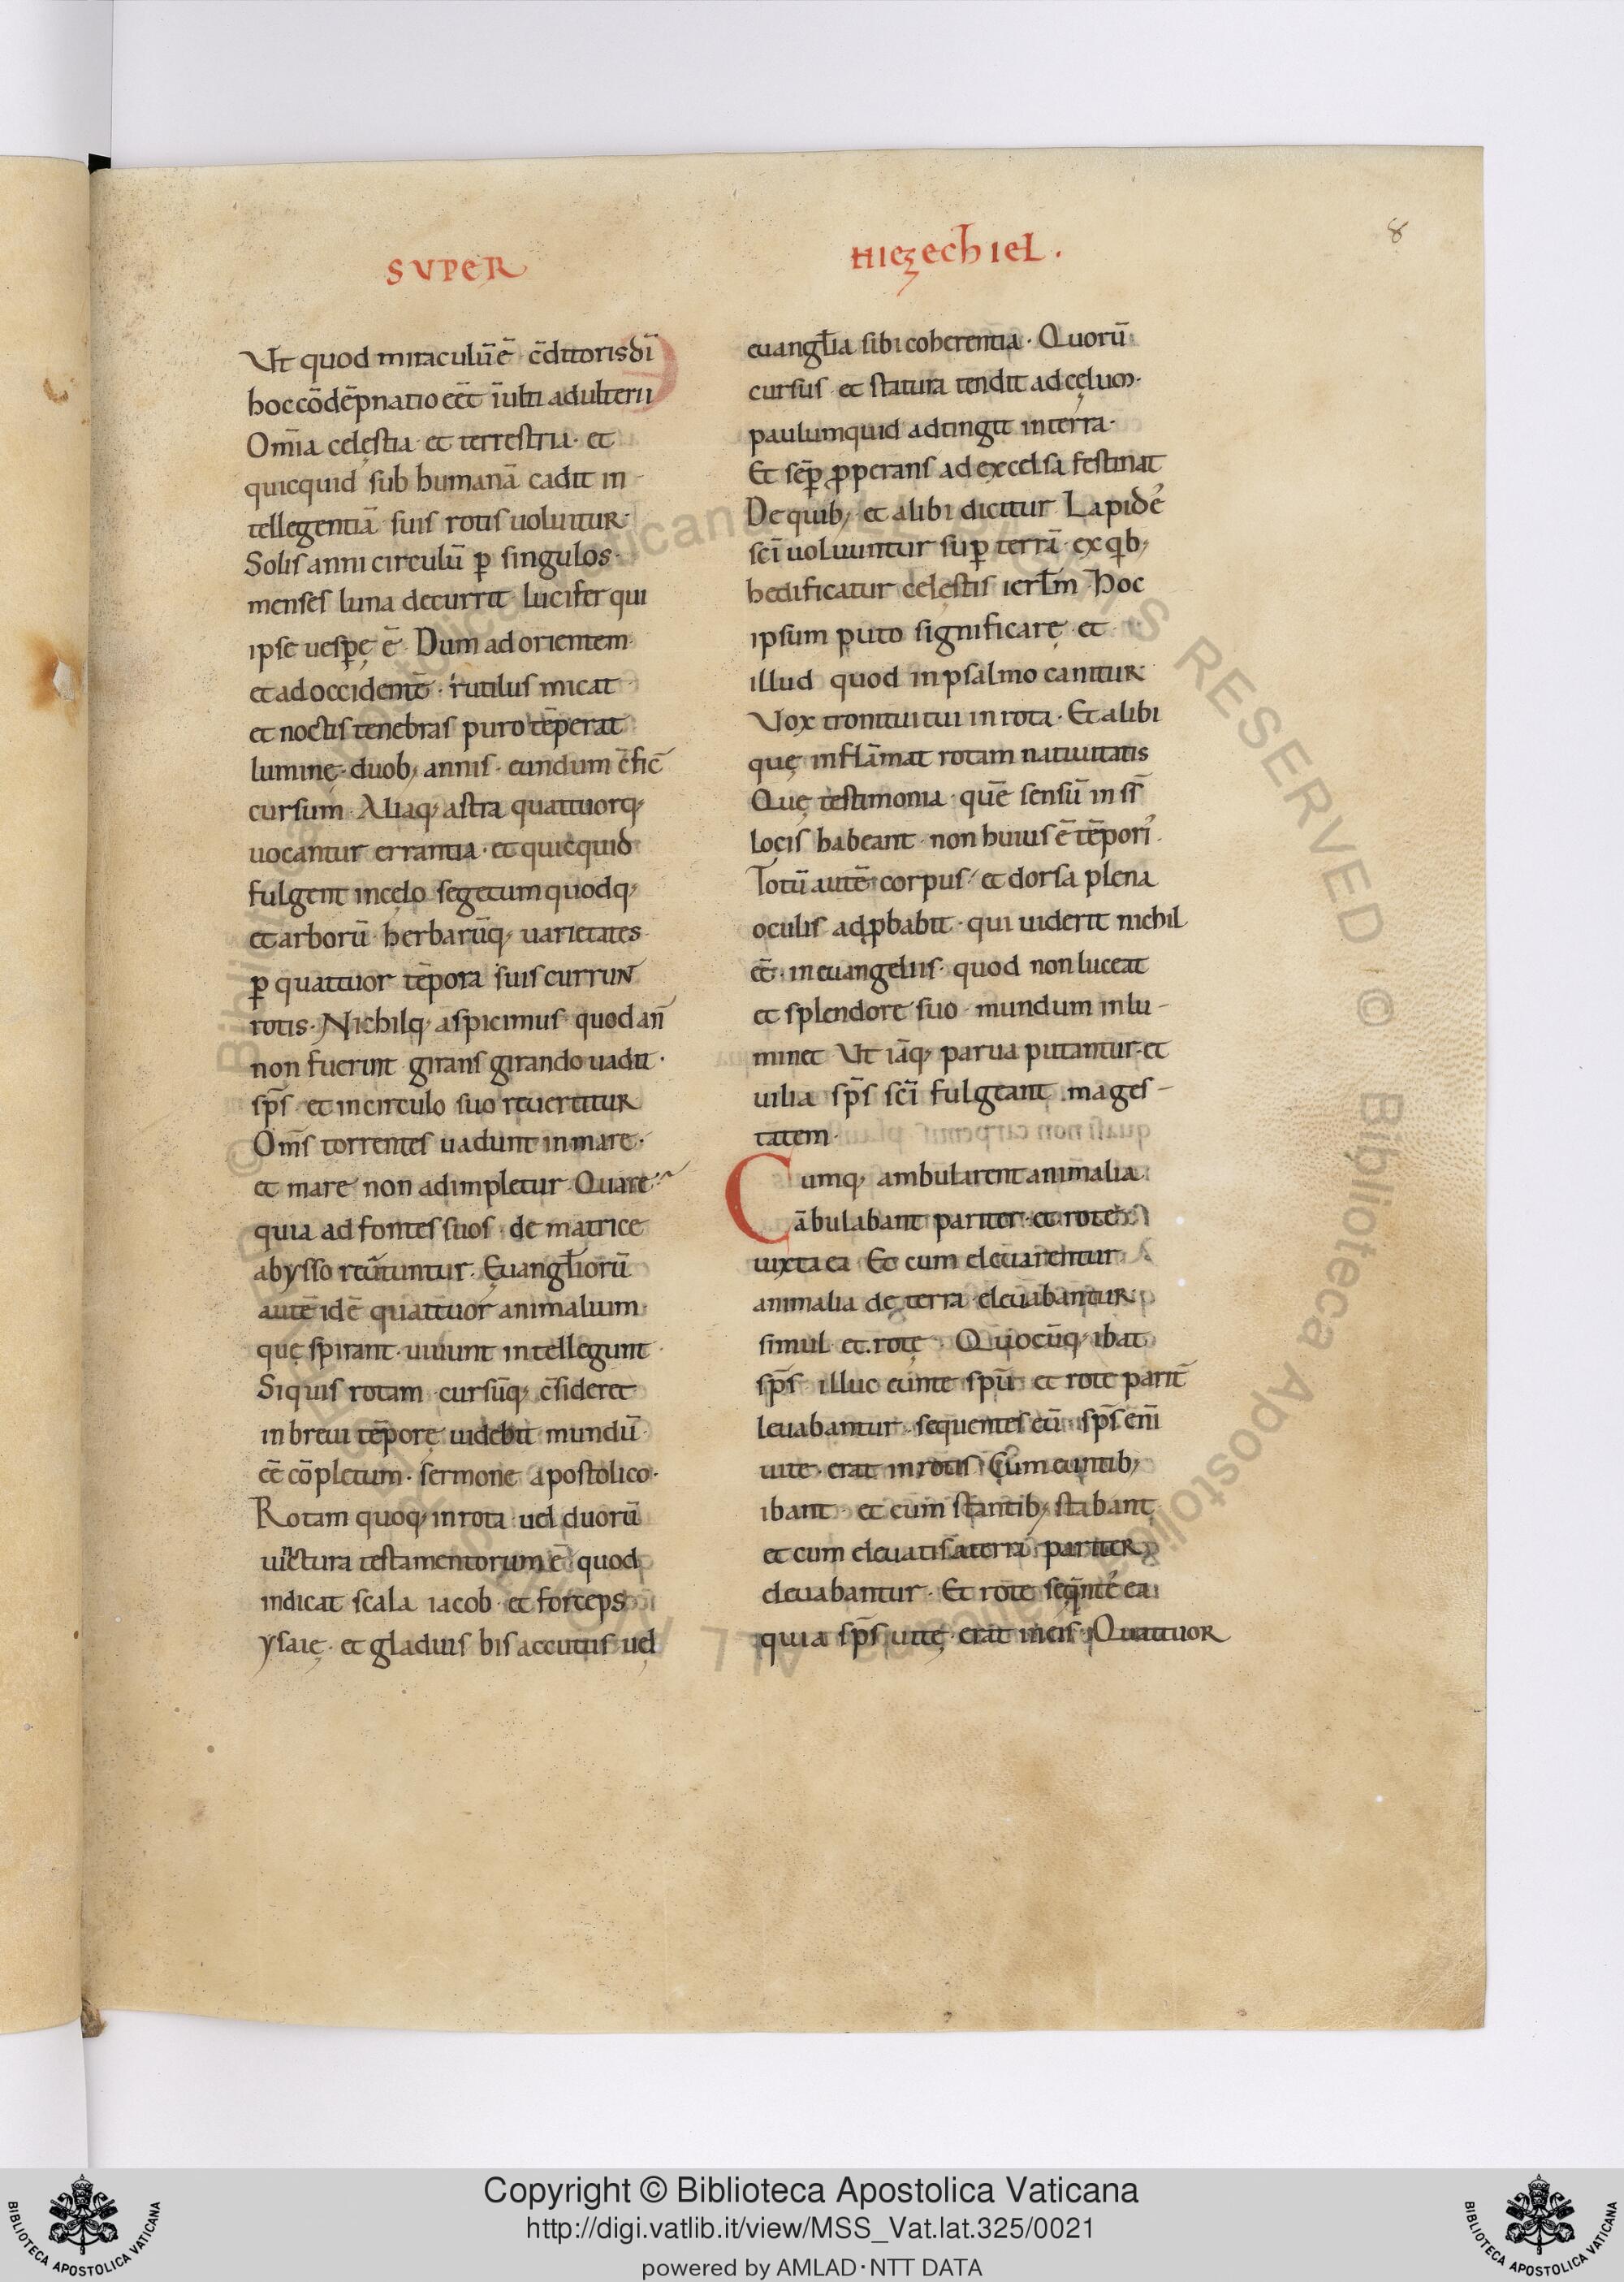 SUPER
HIEZECHIEL.
8
Vt quod miraculū ē c̄ditoris dī
hoc cōdēpnatio eēt īulti adulterii
Om̄ia celęstia · et terrestria · et
quicquid sub humanā cadit in -
tellegentiā suis rotis uoluitur·
Solis anni circulū ꝑ singulos·
menses luna decurrit lucifer qui
ipse uesꝑę ē · Dum ad orientem·
et ad occidentē · rutilus micat
et noctis tenebras puro tēperat
luminę · duob; annis · eundum c̄fic̄
cursum · Aliaq; astra quattuorq;
uocantur errantia · et quicquid
fulgent in cęlo segetum quodq;
et arborū · herbarūq; uarietates
ꝑ quattuor tēpora suis currun̄
rotis · Nichilq; aspicimus · quod an̄
non fuerint · girans girando uadit ·
sp̄s · et in circulo suo reuertitur
Om̄s torrentes uadunt in mare ·
et mare non adimpletur · Quare
quia ad fontes suos · de matrice
abysso reūtuntur · Euangl̄iorū
autē idē quattuor animalium
quę spirant · uiuunt intellegunt ·
Si quis rotam · cursūq; c̄sideret
in breui tēporę uidebit mundū
eē cōpletum · sermone apostolico ·
Rotam quoq; in rota uel duorū
uīctura testamentorum ē quod
indicat scala iacob · et forceps
ysaię · et gladius bis accutus uel
euangl̄ia sibi coherentia · Quorū
cursus · et statura tendit ad cęlum·
paulumquid adtingit in terra·
Et sēꝑ ꝓperans ad excelsa festinat
De quib; et alibi dicitur Lapide᷒
sc̄i uoluuntur suꝑ terrā · ex qb;
hedificatur celęstis ierl̄m · Hoc
ipsum puto significarę et
illud quod in psalmo canitur
Vox tronitui tui in rota · Et alibi
quę inflāmat rotam natiuitatis
Quę testimonia · quē sensū in s̄s̄
locis habeant · non huius ē tēpori᷒ ·
Totū autē corpus · et dorsa plena
oculis adꝓbabit · qui uiderit nichil
eē · in euangeliis · quod non luceat
et splendore suo · mundum inlu -
minet Vt iāq; parua putantur · et
uilia sp̄s sc̄i fulgeant mages -
tatem ·
Cumq; ambularent animalia
ābulabant pariter · et rote
iuxta ea Et cum eleuarentur
animalia de terra · eleuabantur
simul · et · rotę · Quocūq; ibat
sp̄s · illuc eunte spū · et rote parit̄
leuabantur · sequentes eū · sp̄s eni̅
uite · erat in rotis · Cum euntib;
ibant · et cum stantib; stabant
et cum eleuatis a terra · pariter
eleuabantur · Et rote seqn̄te᷒ ea
quia sp̄s uitę · erat in eis · Quattuor
Copyright © Biblioteca Apostolica Vaticana
http://digi.vatlib.it/view/MSS_Vat.lat.325/0021
powered by AMLAD·NTT DATA
BIBLIOTECA APOSTOLICA VATICANA
BIBLIOTECA APOSTOLICA VATICANA